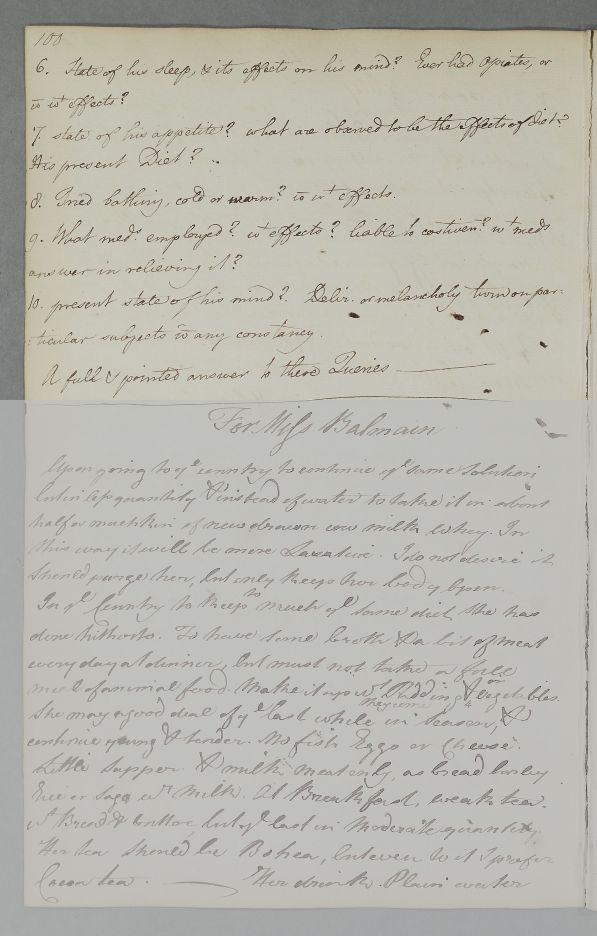 100
6. State of his sleep, & its effects on his mind? Ever had Opiates, or
wt effects?
7. state of his appetite? what are observed to be the effects of diet?
His present Diet?
8. Tried bathing, cold or warm? wt effects.
9. What meds. employed? wt effects? liable to costiven.? wt meds
answer in relieving it?
10. present state of his mind? Delir. or melancholy turn on par:
:ticular subjects any constancy.
A full & pointed answer to these Queries
For Miss Balmain
Upon going to ye country to continue ye same Solution
but in less quantity & instead of water to take it in about
half a mutchkin of new drawn cow milk whey. In
this way it will be more Laxative. I do not desire it
should purge her, but only keep her body open.
In ye Country to keep to much ye same diet she has
done hitherto. To have some broth & a bit of meat
every day at dinner, but must not take a full
meal of animal food. Make it up wt Pudding or Vegetables.
She may a good deal of ye last while in Season, &
they come
continue young & tender. No fish Eggs or Cheese.
Little Supper. & milk meat only, as bread barley
Rice or Sago wt Milk. At Breakfast, weak tea.
wt Bread & butter, but ye last in moderate quantity.
Her tea should be Bohea, but even to it I prefer
Cocoa tea. Her drink. Plain water